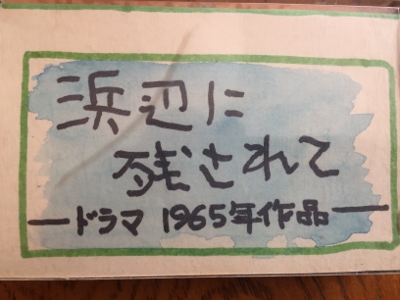 浜辺に
残されて
—ドラマ 1965年作品—